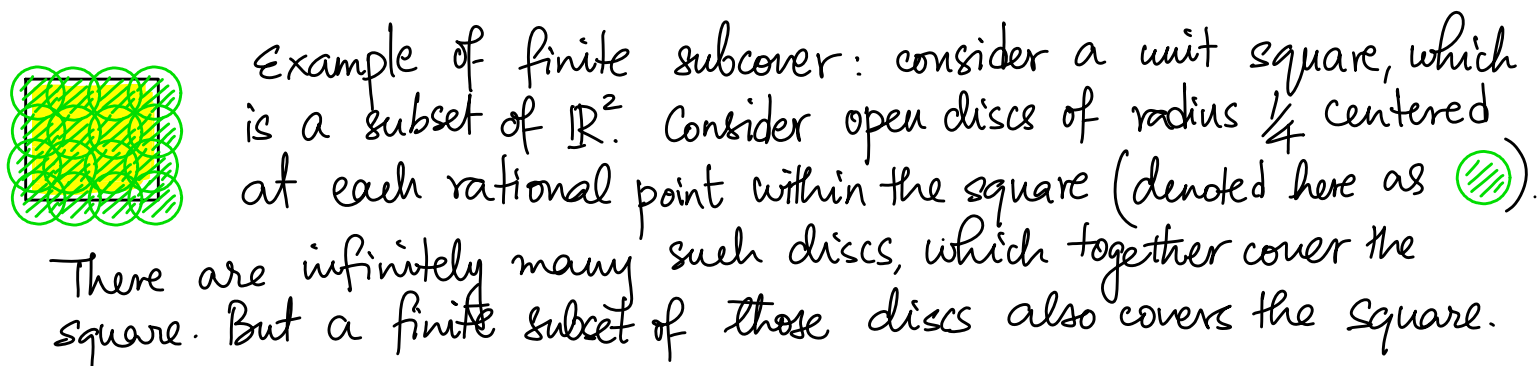 Example of finite subcover: consider a unit square, which
is a subset of ℝ². Consider open discs of radius 1/4 centered
at each rational point within the square (denoted here as ).
There are infinitely many such discs, which together cover the
square. But a finite subset of those discs also covers the square.